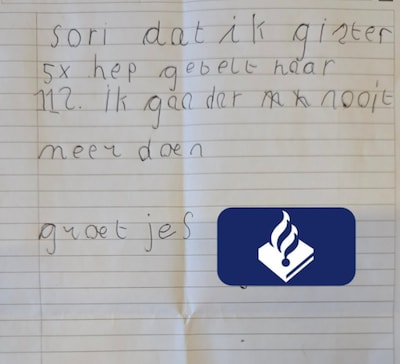 sori dat ik gister
5x hep gebelt naar
112. ik gaa dar nooit
meer doen
groet jes